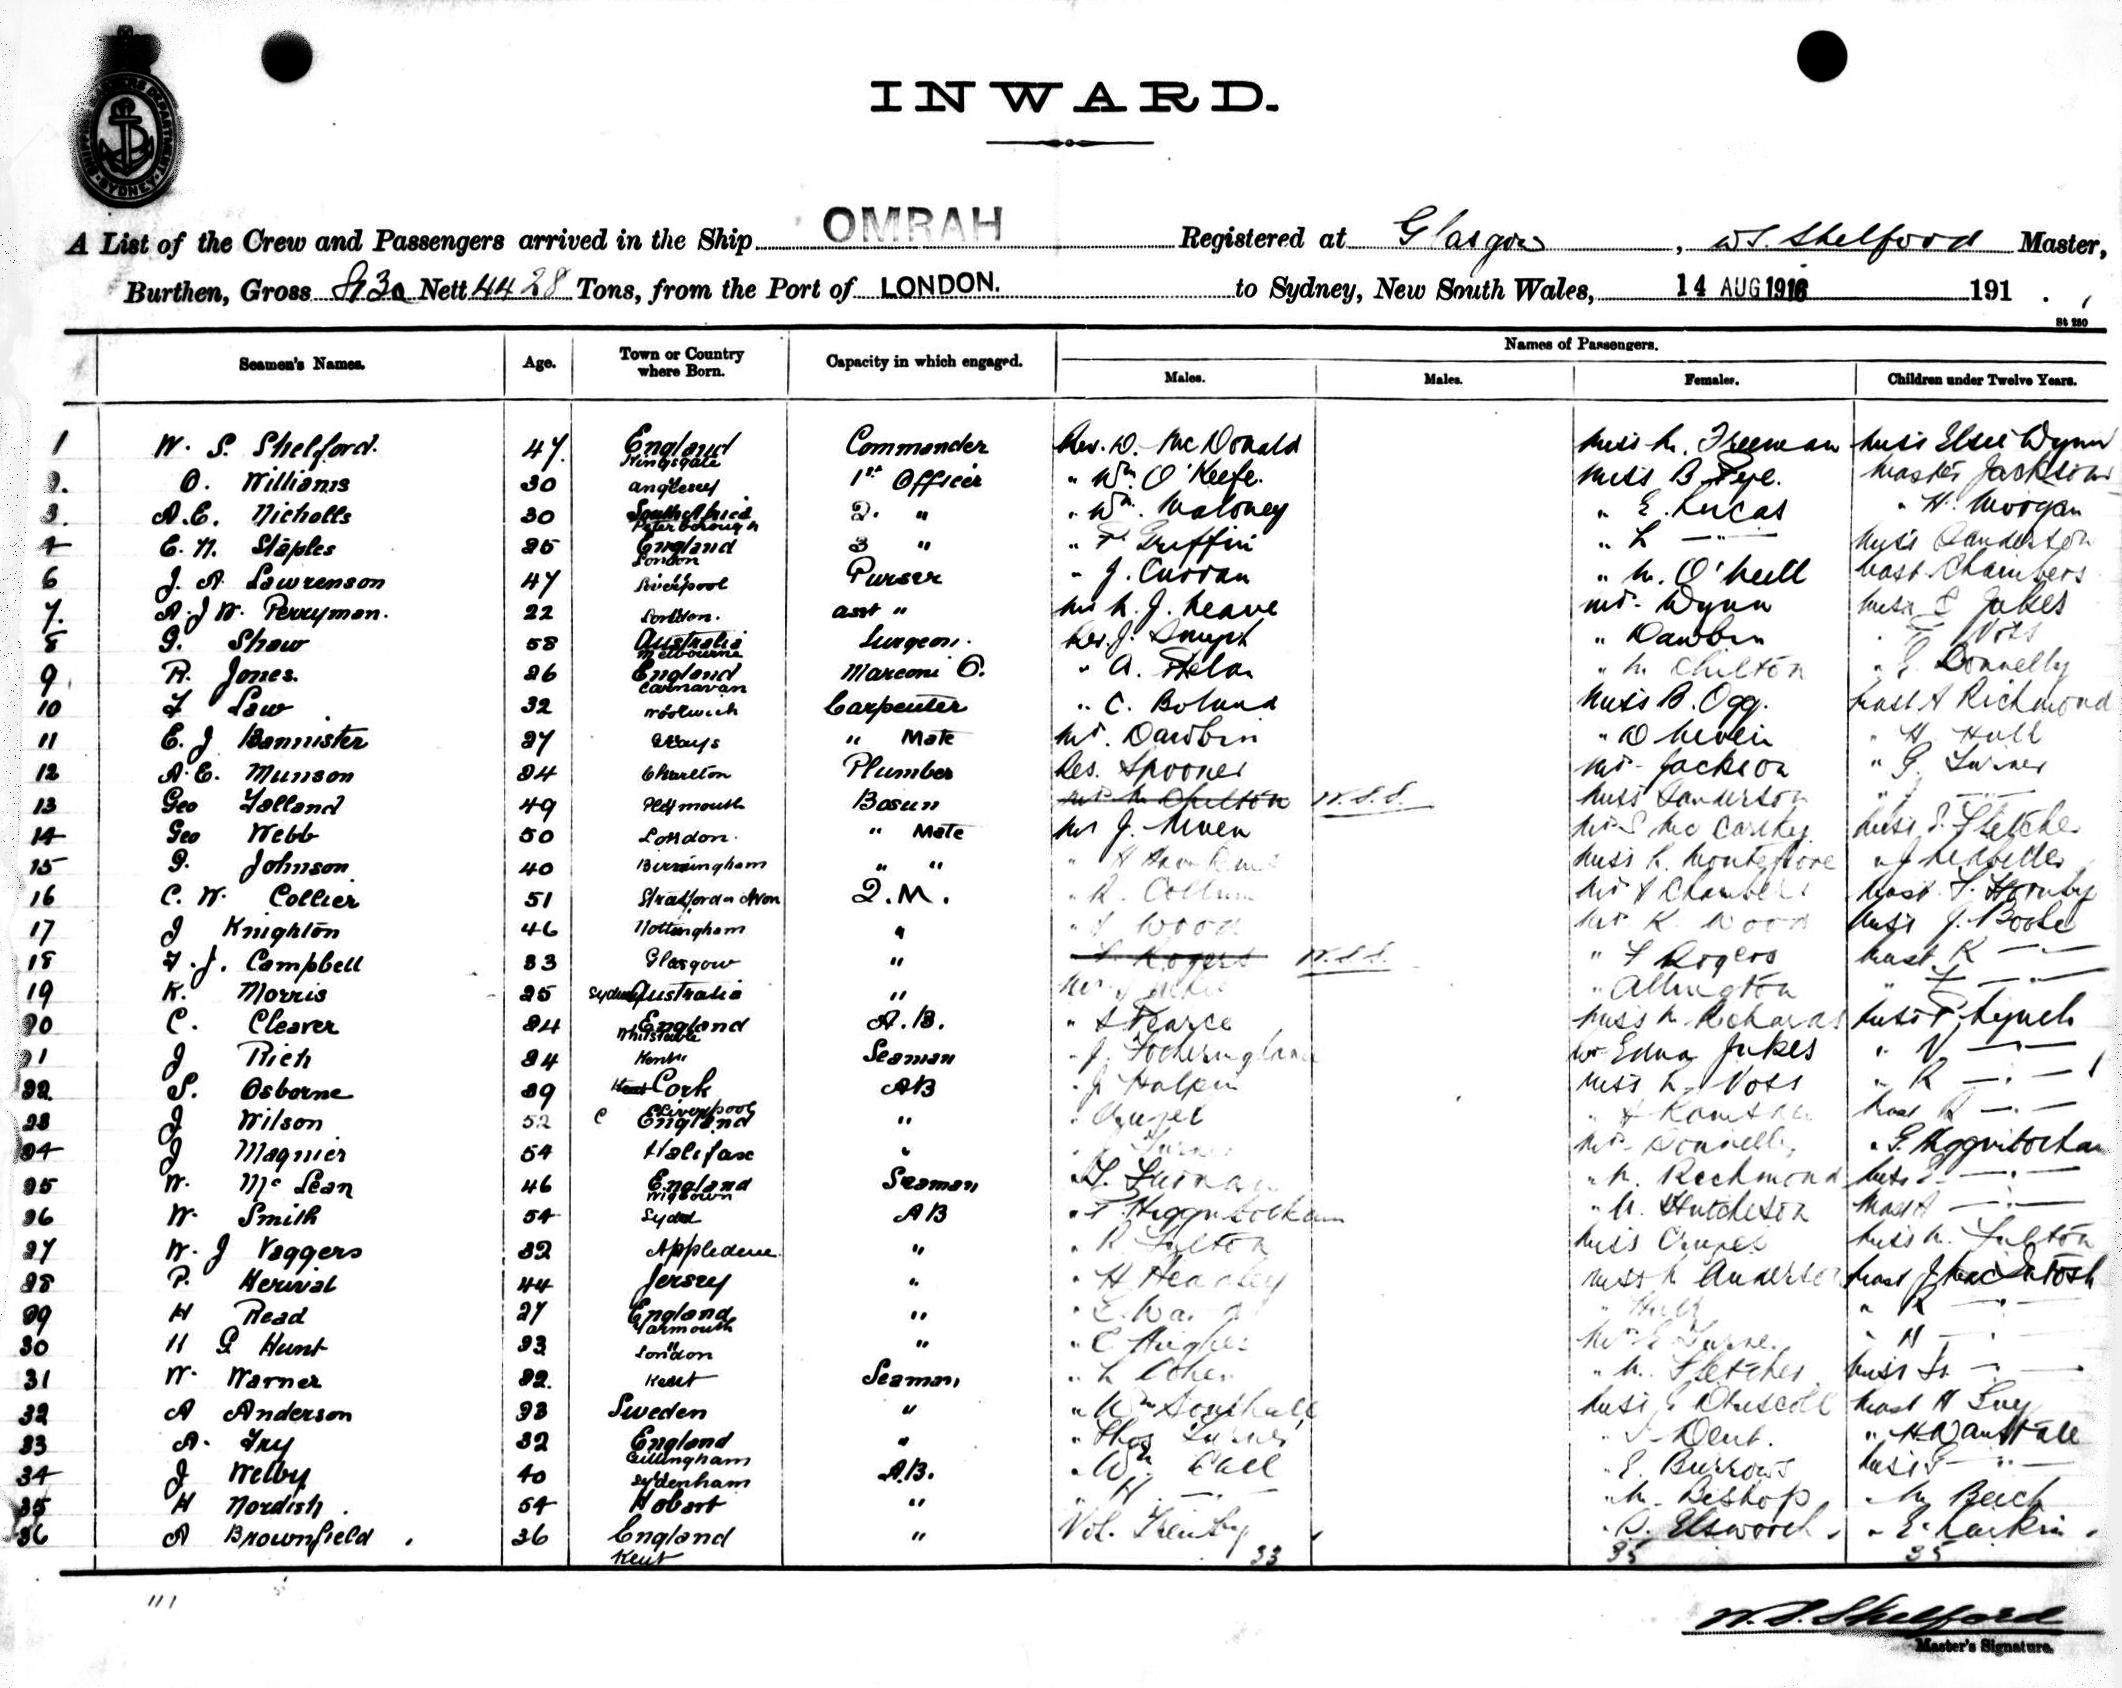 SHIPPING MASTERS DEPARTMENT SYDNEY
INWARD.
A List of the Crew and Passengers arrived in the Ship OMRAH Registered at Glasgow, W S. Shelford Master,
Burthen, Gross Nett 4428 Tons, from the Port of LONDON. to Sydney, New South Wales, 14 AUG 1916 191 .
St 280
Seamen's Names. Age. Town or Country where Born. Capacity in which engaged. Names of Passengers.
Males. Males. Females. Children under Twelve Years.
1 W. S. Shelford. 47. England Kingsgate Commander Rev. D. McDonald Miss M. Freeman Miss Elsie Wynn
2. O. Williams 30 Anglesey 1st Officer " Wm O'Keefe. Miss B. Pepe. Master Jackson
3. A.E. Nicholls 30 South Africa 2. " " Wm. Maloney " E. Lucas " H. Morgan
4 E. N. Staples 25 Peterborough England London 3 " " P Griffin " L — " — Miss Sanderson
6 J. A. Lawrenson 47 Liverpool Purser " J. Curran " M. O'Neill Mast. Chambers
7. A. J W. Perryman. 22 London. asst " Mr J. Neave Mrs. Wynn Miss E Jukes
8 G. Shaw 58 Australia Melbourne Surgeon. Rev. J. Smyth " Dawbin " E Voss
9 R. Jones. 26 England Carnarvan Marconi O. " A. Phelan " M Chilton " E. Donnelly
10 F Law 32 Woolwich Carpenter " C. Boland Miss B. Ogg. Mast A Richmond
11 E. J Bannister 27 Grays " Mate Mr. Dawbin " D Niven " H. Hull
12 A. E. Munson 24 Charlton Plumber Spooner Mrs Jackson " G. Turner
13 Geo Talland 49 Plymouth Bosun Mr M. Chilton W.S.S. Miss Sanderson " J —
14 Geo Webb 50 London. " Mate Mr J. Niven Mrs S McCarthy Miss S. Fletcher
15 G. Johnson 40 Birmingham " " " H Hawkins Miss L. Montefiore
16 C. W. Collier 51 Stratford on Avon Q.M. " R. Mrs Chambers Mast. F. Hornby
17 J Knighton 46 Nottingham " " Wood Mrs K. Wood Miss J. Boote
18 F. J. Campbell 33 Glasgow " Rogers W.S.S. " F Rogers Mast K — " —
19 K. Morris 25 Sydney Australia " Mr " Allington " F — " —
20 C. Cleaver 24 England Whitstable A.B. " S Pearce Miss M Richards Miss P. Lynch
21 J Rich 24 Kent Seaman " J. Fotheringham Edna Jukes " V — " —
22 S. Osborne 29 Cork AB " J Halpin Miss L. Voss " R — " —
23 J Wilson 52 Liverpool England " " Mast R — " —
24 J Magnier 54 Halifax " " Turner Mrs Donnelly " G. Higginbotham
25 W. McLean 46 England Wigtown Seaman " " M. Richmond Miss E — " —
26 W. Smith 54 Syd A B " T. Higginbotham " M. Hutchison Mast A — " —
27 W. J Vaggers 32 Appledore " " R Fulton Miss Miss M. Fulton
28 P. Herival 44 Jersey " " H Headley Miss L Anderson Mast J MacIntosh
29 H Read 27 England Yarmouth " " E. Ward " Hull " R — " —
30 H G Hunt 23 London " " C Hughes Mrs E Turner " H — " —
31 W. Warner 22. Kent Seaman " L Cohen " M. Fletcher Miss — " —
32 A Anderson 23 Sweden " " Wm Southall Miss E Driscoll Mast H Guy
33 A. Fry 32 England Gillingham " " Thos Turner " Dent. " H. Wanstall
34 J Welby 40 Sydenham A.B. " Wm Call " E. Burrows Miss — " —
35 H Nordish. 54 Hobart " " H — " — " M. Bishop " M Beech
36 A Brownfield. 36 England Kent " " Elsworth. " E. Larkin.
33 35 35
W. S. Shelford
Master's Signature.